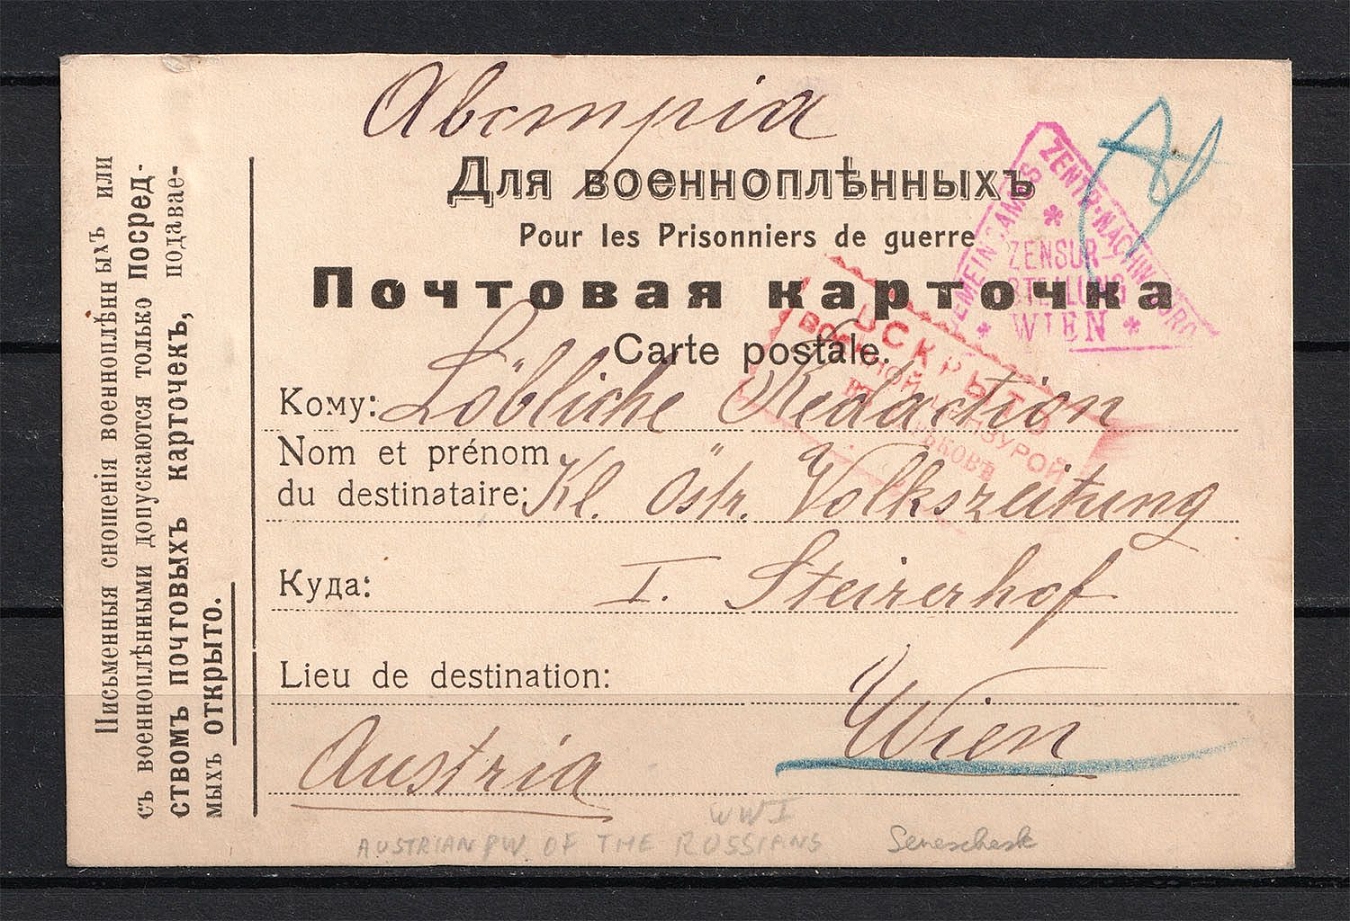 Австрія
Для военноплѣнныхъ
Pour les Prisonniers de guerre
Почтовая карточка
Carte postale.
Кому: Löbliche Redaction
Nom et prénom
du destinataire: Kl. Östr. Volkszeitung
Куда: I. Steirerhof
Lieu de destination:
Wien
Austria
WWI
AUSTRIAN PW OF THE RUSSIANS
Письменныя сношенія военноплѣнныхъ или
съ военноплѣнными допускаются только посред-
ствомъ почтовыхъ карточекъ, подавае-
мыхъ открыто.
GEMEINSAMES
ZENTR-NACHW-BÜRO
ZENSUR-
ABTEILUNG
WIEN
ВСКРЫТО
ВОЕННОЙ ЦЕНЗУРОЙ